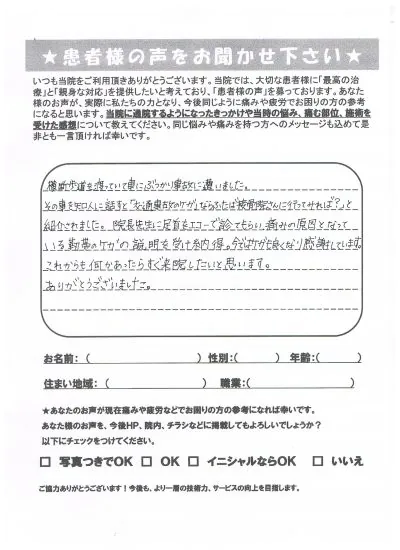 ★患者様の声をお聞かせ下さい★
いつも当院をご利用頂きありがとうございます。当院では、大切な患者様に「最高の治
療」と「親身な対応」を提供したいと考えており、「患者様の声」を募っております。あなた
様のお声が、実際に私たちの力となり、今後同じように痛みや疲労でお困りの方の参考
になると思います。当院に通院するようになったきっかけや当時の悩み、痛む部位、施術を
受けた感想について教えてください。同じ悩みや痛みを持つ方へのメッセージも込めて是
非とも一言頂ければ幸いです。
横断歩道を渡っていて車にぶつかり事故に遭いました。
その事を知人に話すと「交通事故のケガ」ならふたば接骨院さんに行ってみれば?」と
紹介されました。院長先生に足首をエコーで診てもらい痛みの原因となって
いる靭帯のケガの説明を受け納得。今はケガも良くなり感謝しています。
これからも何かあったらすぐ来院したいと思います。
ありがとうございました。
お名前:( ) 性別:( ) 年齢:( )
住まい地域:( ) 職業:( )
★あなたのお声が現在痛みや疲労などでお困りの方の参考になれば幸いです。
あなた様のお声を、今後HP、院内、チラシなどに掲載してもよろしいでしょうか?
以下にチェックをつけてください。
□ 写真つきでOK □ OK □ イニシャルならOK □ いいえ
ご協力ありがとうございます！今後も、より一層の技術力、サービスの向上を目指します。